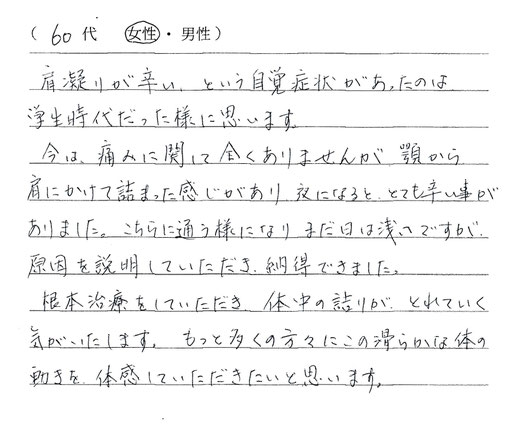 ( 60代 女性・男性)
肩凝りが辛い、という自覚症状があったのは
学生時代だった様に思います。
今は、痛みに関して全くありませんが 顎から
肩にかけて詰まった感じがあり 夜になると、とても辛い事が
ありました。こちらに通う様になり まだ日は浅いですが、
原因を説明していただき、納得できました。
根本治療をしていただき 体中の詰りが とれていく
気がいたします。 もっと多くの方々にこの滑らかな体の
動きを 体感していただきたいと思います。